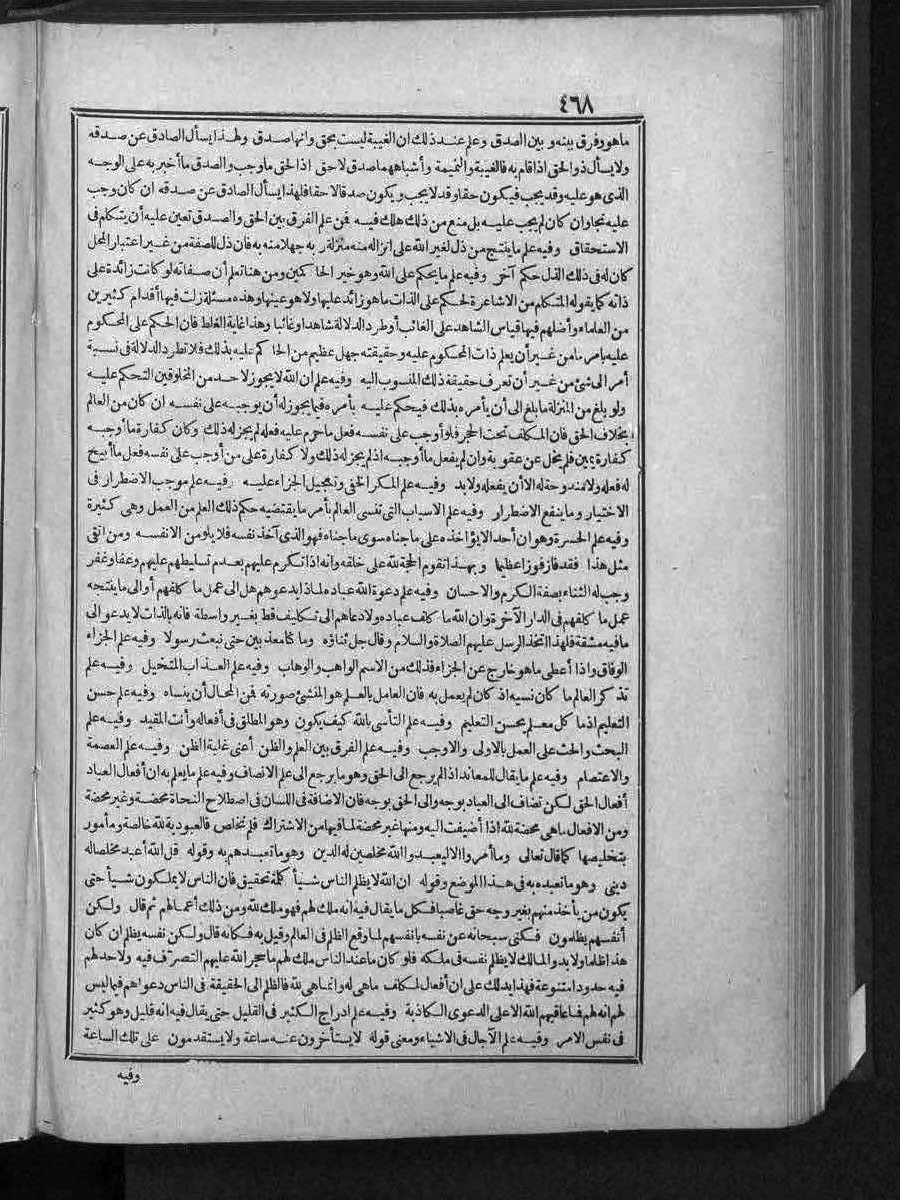 ٤٦٨
ماهو وفرق بينه و بين الصدق وعلم عند ذلك ان الغيبة ليست بحق وانها صدق ولهذا يسأل الصادق عن صدقه
ولا يسأل ذو الحق اذا قام به فالغيبة والنميمة وأشباههما صدق لا حق اذ الحق ما وجب والصدق ما أخبر به على الوجه
الذى هو عليه وقد يجب فيكون حقا وقد لا يجب و يكون صدقا لا حقا فلهذا يسأل الصادق عن صدقه ان كان وجب
عليه نجا وان كان لم يجب عليه بل منع من ذلك هلك فيه فمن علم الفرق بين الحق والصدق تعين عليه أن يتكلم فى
الاستحقاق وفيه علم ما ينتج من ذل لغير الله على انزاله منه منزلة ربه جهلا منه به فان ذل للصفة من غير اعتبار المحل
كان له فى ذلك الذل حكم آخر وفيه علم ما يحكم على الله وهو خير الحاكمين ومن هنا تعلم أن صفاته لو كانت زائدة على
ذاته كما يقوله المتكلم من الاشاعرة لحكم على الذات ما هو زائد عليها ولا هو عينها وهذه مسئلة زلت فيها أقدام كثيرين
من العلماء وأضلهم فيها قياس الشاهد على الغائب أو طرد الدلالة شاهدا وغائبا وهذا غاية الغلط فان الحكم على المحكوم
عليه بأمر ما من غير أن يعلم ذات المحكوم عليه وحقيقته جهل عظيم من الحاكم عليه بذلك فلا تطرد الدلالة فى نسبة
أمر الى شئ من غير أن تعرف حقيقة ذلك المنسوب اليه وفيه علم ان الله لا يجوز لاحد من المخلوقين التحكم عليه
ولو بلغ من المنزلة ما بلغ الى أن يأمره بذلك فيحكم عليه بأمره فيما يجوز له أن يوجبه على نفسه ان كان من العالم
بخلاف الحق فان المكلف تحت الحجر فلو أوجب على نفسه فعل ما حرم عليه فعله لم يجز له ذلك وكان كفارة ما أوجبه
كفارة يمين فلم يخل عن عقوبة وان لم يفعل ما أوجبه اذ لم يجز له ذلك ولا كفارة على من أوجب على نفسه فعل ما أبيح
له فعله ولا مندوحة له الا أن يفعله ولابد وفيه علم المكر الخفى وتعجيل الجزاء عليه وفيه علم موجب الاضطرار فى
الاختيار وما ينفع الاضطرار وفيه علم الاسباب التى تنسى العالم بأمر ما يقتضيه حكم ذلك العلم من العمل وهى كثيرة
وفيه علم الحسرة وهو ان أحد الا يؤاخذه على ما جناه سوى ما جناه فهو الذى آخذ نفسه فلا يلومن الا نفسه ومن اتقى
مثل هذا فقد فاز فوزا عظيما وبهذا تقوم الحجة لله على خلقه وانه اذا تكرم عليهم بعدم تسليطهم عليهم وعفا وغفر
وجب له الثناء بصفة الكرم والاحسان وفيه علم دعوة الله عباده لماذا يدعوهم هل الى عمل ما كلفهم أو الى ما ينتجه
عمل ما كلفهم فى الدار الآخرة وان الله ما كلف عباده ولا دعاهم الى تكليف قط بغير واسطة فانه بالذات لا يدعو الى
ما فيه مشقة فلهذا اتخذ الرسل عليهم الصلاة والسلام وقال جل ثناؤه وما كنا معذبين حتى نبعث رسولا وفيه علم الجزاء
الوفاق واذا أعطى ما هو خارج عن الجزاء فذلك من الاسم الواهب والوهاب وفيه علم العذاب المتخيل وفيه علم
تذكر العالم ما كان نسيه اذ كان لم يعمل به فان العامل بالعلم هو المنشئ صورته فمن المحال أن ينساه وفيه علم حسن
التعليم اذ ما كل معلم يحسن التعليم وفيه علم التأسى بالله كيف يكون وهو المطلق فى أفعاله وأنت المقيد وفيه علم
البحث والحث على العمل بالاولى والاوجب وفيه علم الفرق بين العلم والظن أعنى غلبة الظن وفيه علم العصمة
والاعتصام وفيه علم ما يقال للمعاند اذا لم يرجع الى الحق وهو ما يرجع الى علم الانصاف وفيه علم ما يعلم به ان أفعال العباد
أفعال الحق لكن تضاف الى العباد بوجه والى الحق بوجه فان الاضافة فى اللسان فى اصطلاح النحاة محضة وغير محضة
ومن الافعال ما هى محضة لله اذا أضيفت اليه ومنها غير محضة لما فيها من الاشتراك فلم تخلص فالعبودية لله خالصة ومأمور
بتخليصها كما قال تعالى وما أمروا الا ليعبدوا الله مخلصين له الدين وهو ما تعبدهم به وقوله قل الله أعبد مخلصا له
دينى وهو ما تعبده به فى هذا الموضع وقوله ان الله لا يظلم الناس شيأ كلمة تحقيق فان الناس لا يملكون شيأ حتى
يكون من يأخذ منهم بغير وجه حق غاصبا فكل ما يقال فيه انه ملك لهم فهو ملك لله ومن ذلك أعمالهم ثم قال ولكن
أنفسهم يظلمون فكنى سبحانه عن نفسه بانفسهم لما وقع الظلم فى العالم وقيل به فكانه قال ولكن نفسه يظلم ان كان
هذا ظلما ولابد والمالك لا يظلم نفسه فى ملكه فلو كان ما عند الناس ملك لهم ما حجر الله عليهم التصرف فيه ولا حد لهم
فيه حدودا متنوعة فهذا يدلك على ان أفعال المكلف ما هى له وانما هى لله فالظلم الى الحقيقة فى الناس دعواهم فيما ليس
لهم انه لهم فما عاقبهم الله الا على الدعوى الكاذبة وفيه علم ادراج الكثير فى القليل حتى يقال فيه انه قليل وهو كثير
فى نفس الامر وفيه علم الآجال فى الاشياء ومعنى قوله لا يستأخرون عنه ساعة ولا يستقدمون على تلك الساعة
وفيه